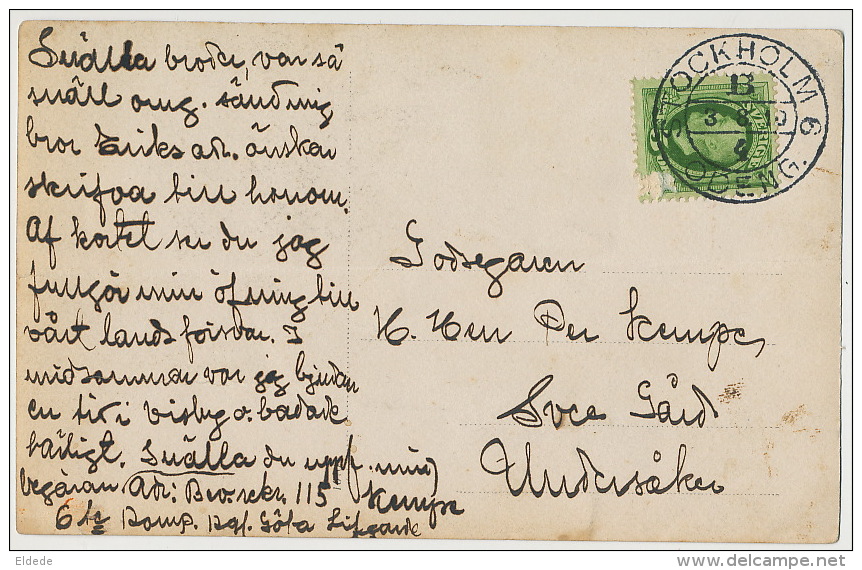 Snälla broder, var så
snäll omg. sänd mig
bror Eriks adr. önskar
skrifva till honom.
Af kortet ser du jag
fullgör min öfning till
vårt lands försvar. I
midsommar var jag bjuden
en tir i Visby o. badade
härligt. Snälla du uppf. min
begäran Adr: 115
Kempe
6te Komp. Kgl. Göta Lifgarde
Godsegaren
H. Herr Per Kempe,
Svea Gård
Undersåker
STOCKHOLM 6
B
3 8
ODENG.
SVERIGE
Eldede
delcampe.net